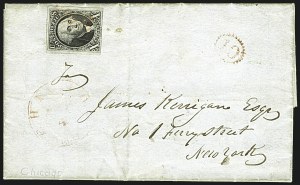 10
For
James Kerrigan Esqr
No 1 Ferry Street
New York